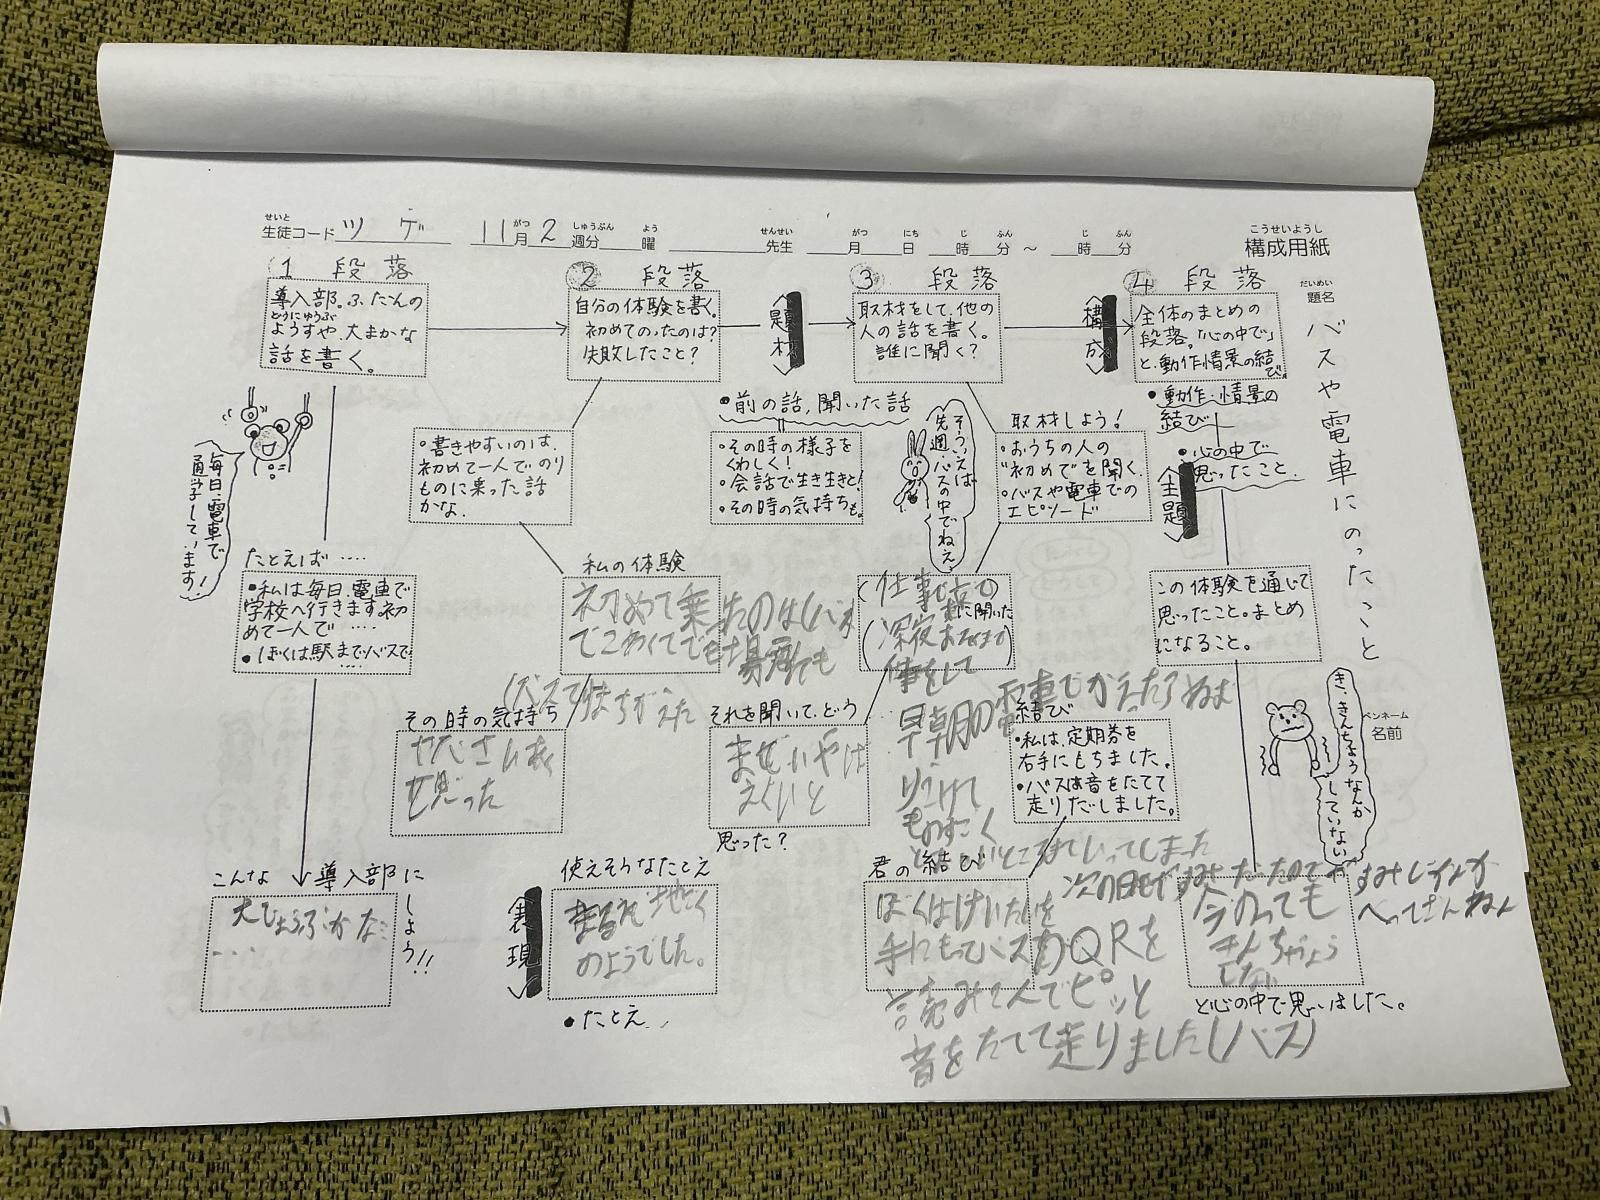 せいと
生徒コード ツゲ 11月2週分 曜 先生 月 日 時 分 ～ 時 分
がつ しゅうぶん よう せんせい がつ にち じ ふん じ ふん
こうせいようし
構成用紙
だいめい
題名
バスや電車にのったこと
ペンネーム
名前
1 段落
導入部。ふだんの
どうにゅうぶ
ようすや、大まかな
話を書く。
毎日、電車で
通学しています!
たとえば ‥‥
・私は毎日、電車で
学校へ行きます。初
めて一人で ‥‥
・ぼくは駅までバスで
‥‥
こんな 導入部に
しよう!!
大じょうぶかな
2 段落
自分の体験を書く。
初めてのったのは?
失敗したこと?
・書きやすいのは、
初めて一人でのり
ものに乗った話
かな。
題材
・前の話、聞いた話
・その時の様子を
くわしく!
・会話で生き生きと!
・その時の気持ちも。
私の体験
初めて乗ったのはバス
でこわくて
まちがえた
その時の気持ち
と思った
使えそうなたとえ
まるで地ごく
のようでした。
表現
・たとえ
3 段落
取材をして、他の
人の話を書く。
誰に聞く?
そういえば
先週、バスの中でねぇ
取材しよう!
・おうちの人の
“初めて”を聞く。
・バスや電車での
エピソード
に聞いた
仕事をして
早朝の電車でかえったらねむ
ものすごく
ところまでいってしまった
それを聞いて、どう
思った?
構成
4 段落
全体のまとめの
段落。「心の中で」
と、動作情景の結び。
・動作・情景の
結び
・心の中で
思ったこと。
主題
この体験を通じて
思ったこと。まとめ
になること。
き、きんちょうなんか
していない
結び
・私は、定期券を
右手にもちました。
・バスは音をたてて
走りだしました。
君の結び
ぼくはけいたいを
手にもってバスのQRを
読みこんでピッと
音をたてて走りました(バス)
今のっても
きんちょう
と心の中で思いました。